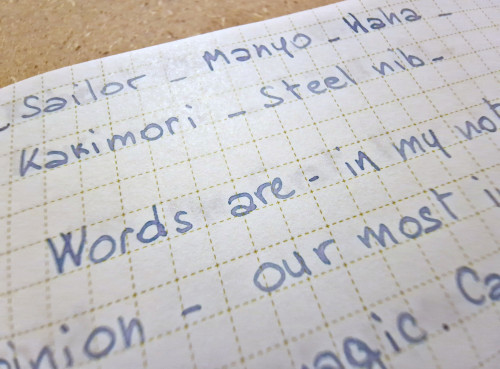 Sailor - Manyo - Haha -
Kakimori - Steel nib -
Words are - in my not
inion - our most i
agic. Ca